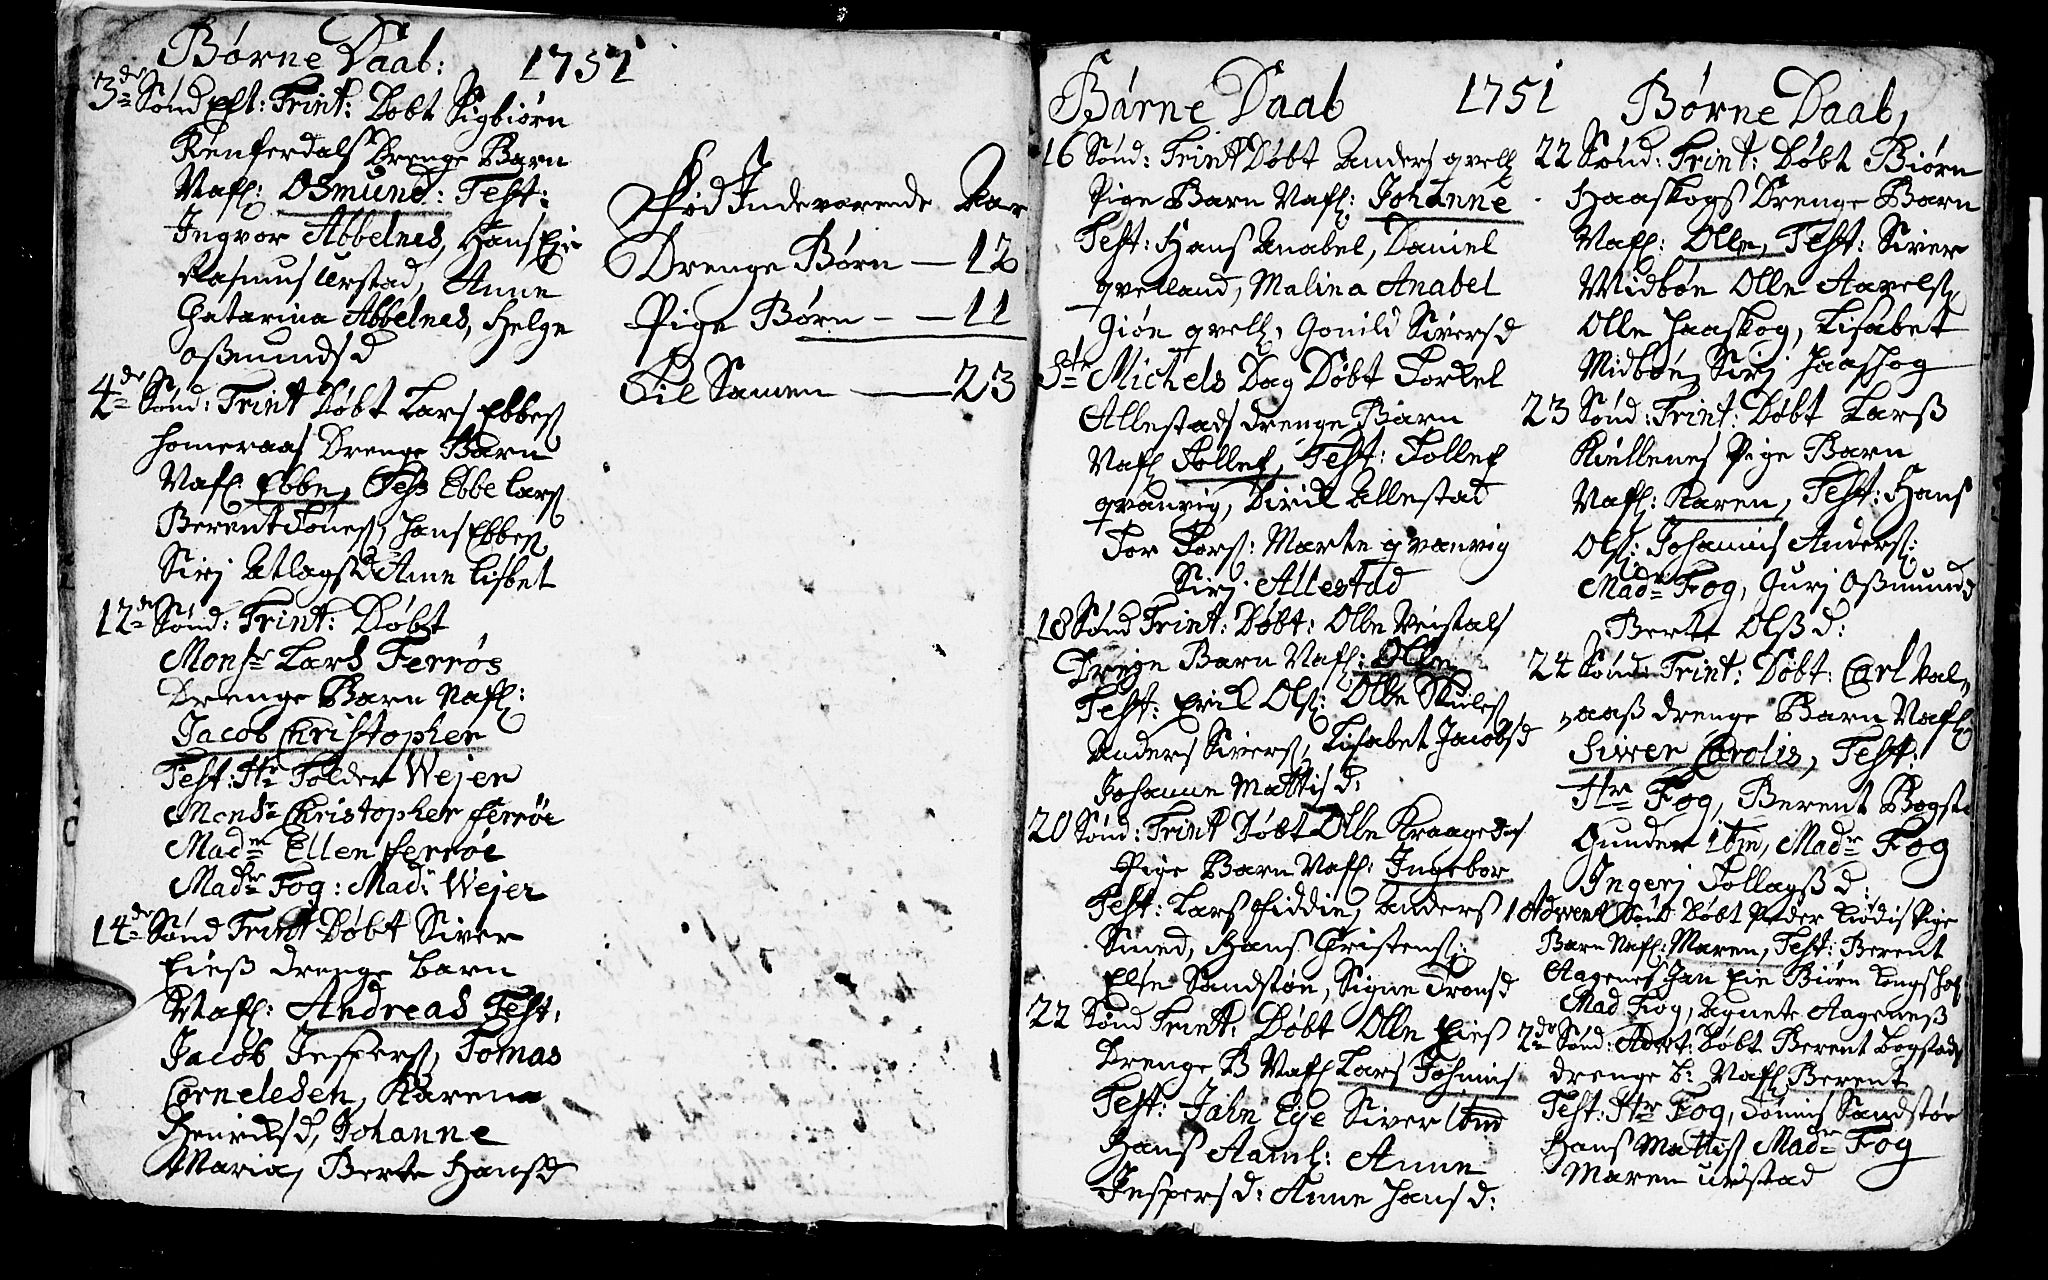 Børne Daab: 1751
3de Sønd Eft: Trint: Døbt Sigbiørn
Renferdals Drenge Barn
Nafl: Osmund: Test:
Ingvor Abbelnes, Hans Eie
Rasmus Urstad, Anne
Chatarina Abbelnes, Helge
Osmundsd
4de Sønd: Trint Døbt Lars Ebbes
homeraas Drenge Barn
Nafl: Ebbe, Test Ebbe Lars
Berent Tønes, Hans Ebbes
Siri Atlagsd Anne Lisbet
12de Sønd: Trint: Døbt
Monsr Lars Ferrøs
Drenge Barn Nafl:
Jacob Christopher
Test: Hr Tolder Wejer
Monsr Christopher Ferrøe
Madm Ellen Ferrøe
Madme Fog: Mad: Wejer
14de Sønd Trint Døbt Siver
Eies drenge barn
Nafl: Andreas Test:
Jacob Jespers, Tomas
Corneleden, Karen
Henrichsd, Johanne
Maria, Berte Hansd
Fød Indeværende Aar
Drenge Børn — 12
Pige Børn - — 11
Til Samen — 23
Børne Daab 1751
16 Sønd: Trint Døbt Anders qvell
Pige Barn Nafl: Johanne
Test: Hans Anabel, Daniel
qvelland, Malina Anabel
Giøn qvell, Gonild Siversd
Ste Michels Dag Døbt Torkel
Allestads drenge Barn
Nafl Tollef, Test: Tollef
qvanvig, Dirik Allestad
Tor Tors: Marte qvanvig
Siri Allestad
18 Sønd Trint: Døbt: Olle Veistals
Drenge Barn Nafl: Olle
Test: Erik Ols: Olle Skieles
Anders Sivers, Lisabet Jacobsd
Johanne Mattisd:
20 Sønd: Trint Døbt Olle Kraagedas
Pige Barn Nafl: Ingebor
Test: Lars Fiddin, Anders
Smed, Hans Christens:
Else Sandstøe, Signe Tronsd
22 Sønd Trint: Døbt Olle Eies
Drenge B Nafl Lars Johanis
Test: Jahn Eye Siver ibm
Hans Aaml: Anne
Jespersd: Anne Hansd:
Børne Daab,
22 Sønd: Trint: Døbt Biørn
Haaskogs Drenge Barn
Nafl: Olle, Test: Siver
Midbøe Olle Aarels
Olle Haaskog, Lisabet
Midbøe, Siri Haaskog
23 Sønd: Trint: Døbt Lars
Kiellenes Pige Barn
Nafl: Karen, Test: Hans
Ols: Johanis Anders:
Madm Fog, Guri Osmundsd
Berte Olsd:
24 Sønd: Trint: Døbt: Carl Val,
,aas drenge Barn Nafl
Siver Carolis, Test:
Hr Fog, Berent Bogsta
Gunder ibm, Madm Fog
Ingeri Tollagsd:
1 Advent Sønd Døbt Peder Pige
Barn Nafl: Maren, Test: Berent
Aagenes Jan Eie Biørn
Mad Fog, Agnete Aagenes
2de Sønd: Advt: Døbt Berent Bogstads
drenge b: Nafl Berent
Test: Hr Fog, Tønnis Sandstøe
Hans Mattis Madm Fog
Maren Urstad